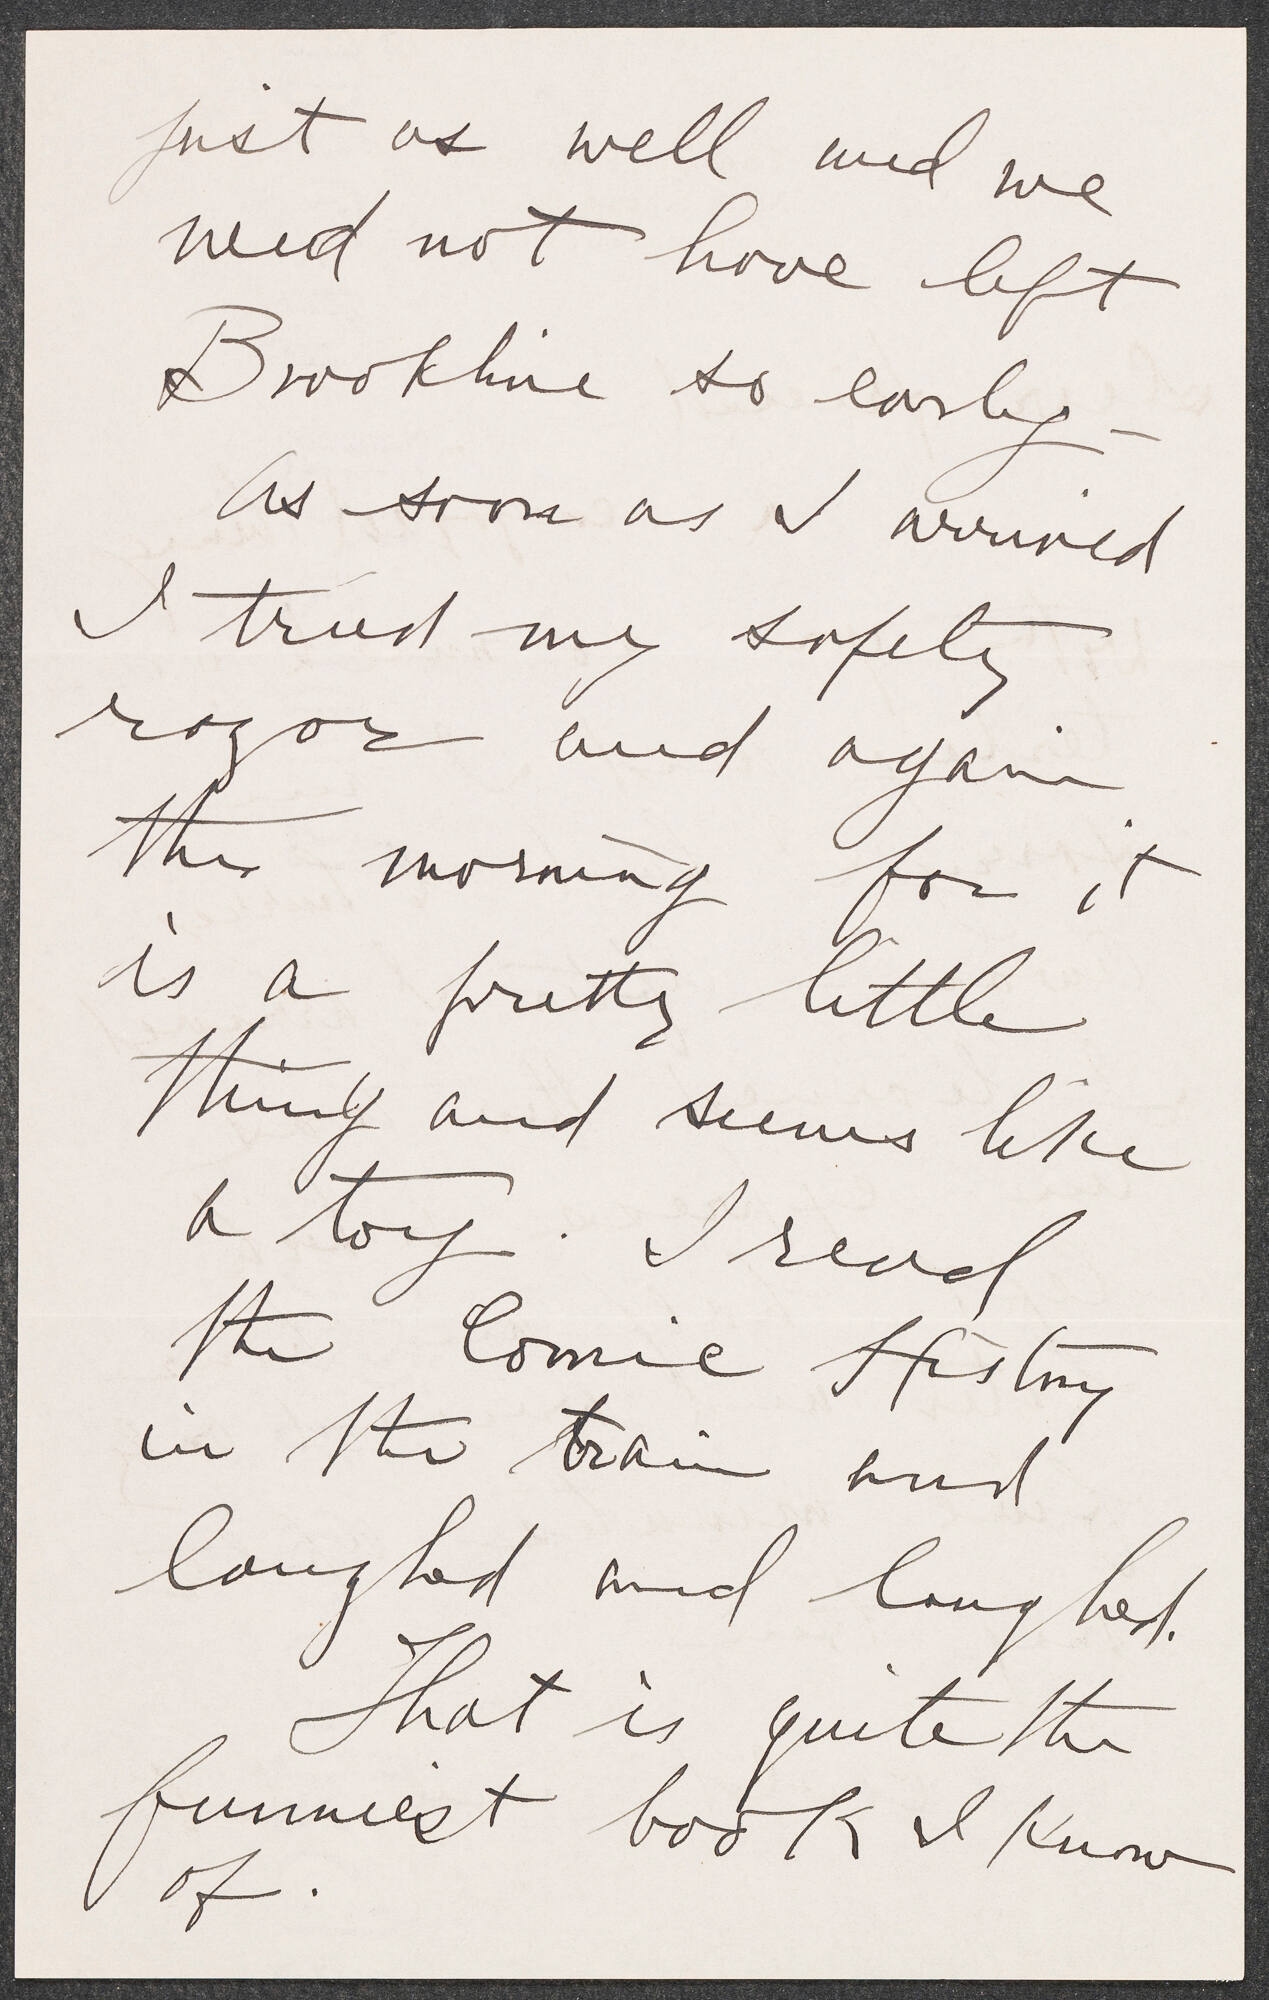 just as well and we
need not have left
Brookline so early —
As soon as I arrived
I tried my safety
razor and again
this morning for it
is a pretty little
thing and seems like
a toy. I read
the Comic History
in the train and
laughed and laughed.
That is quite the
funniest book I know
of.